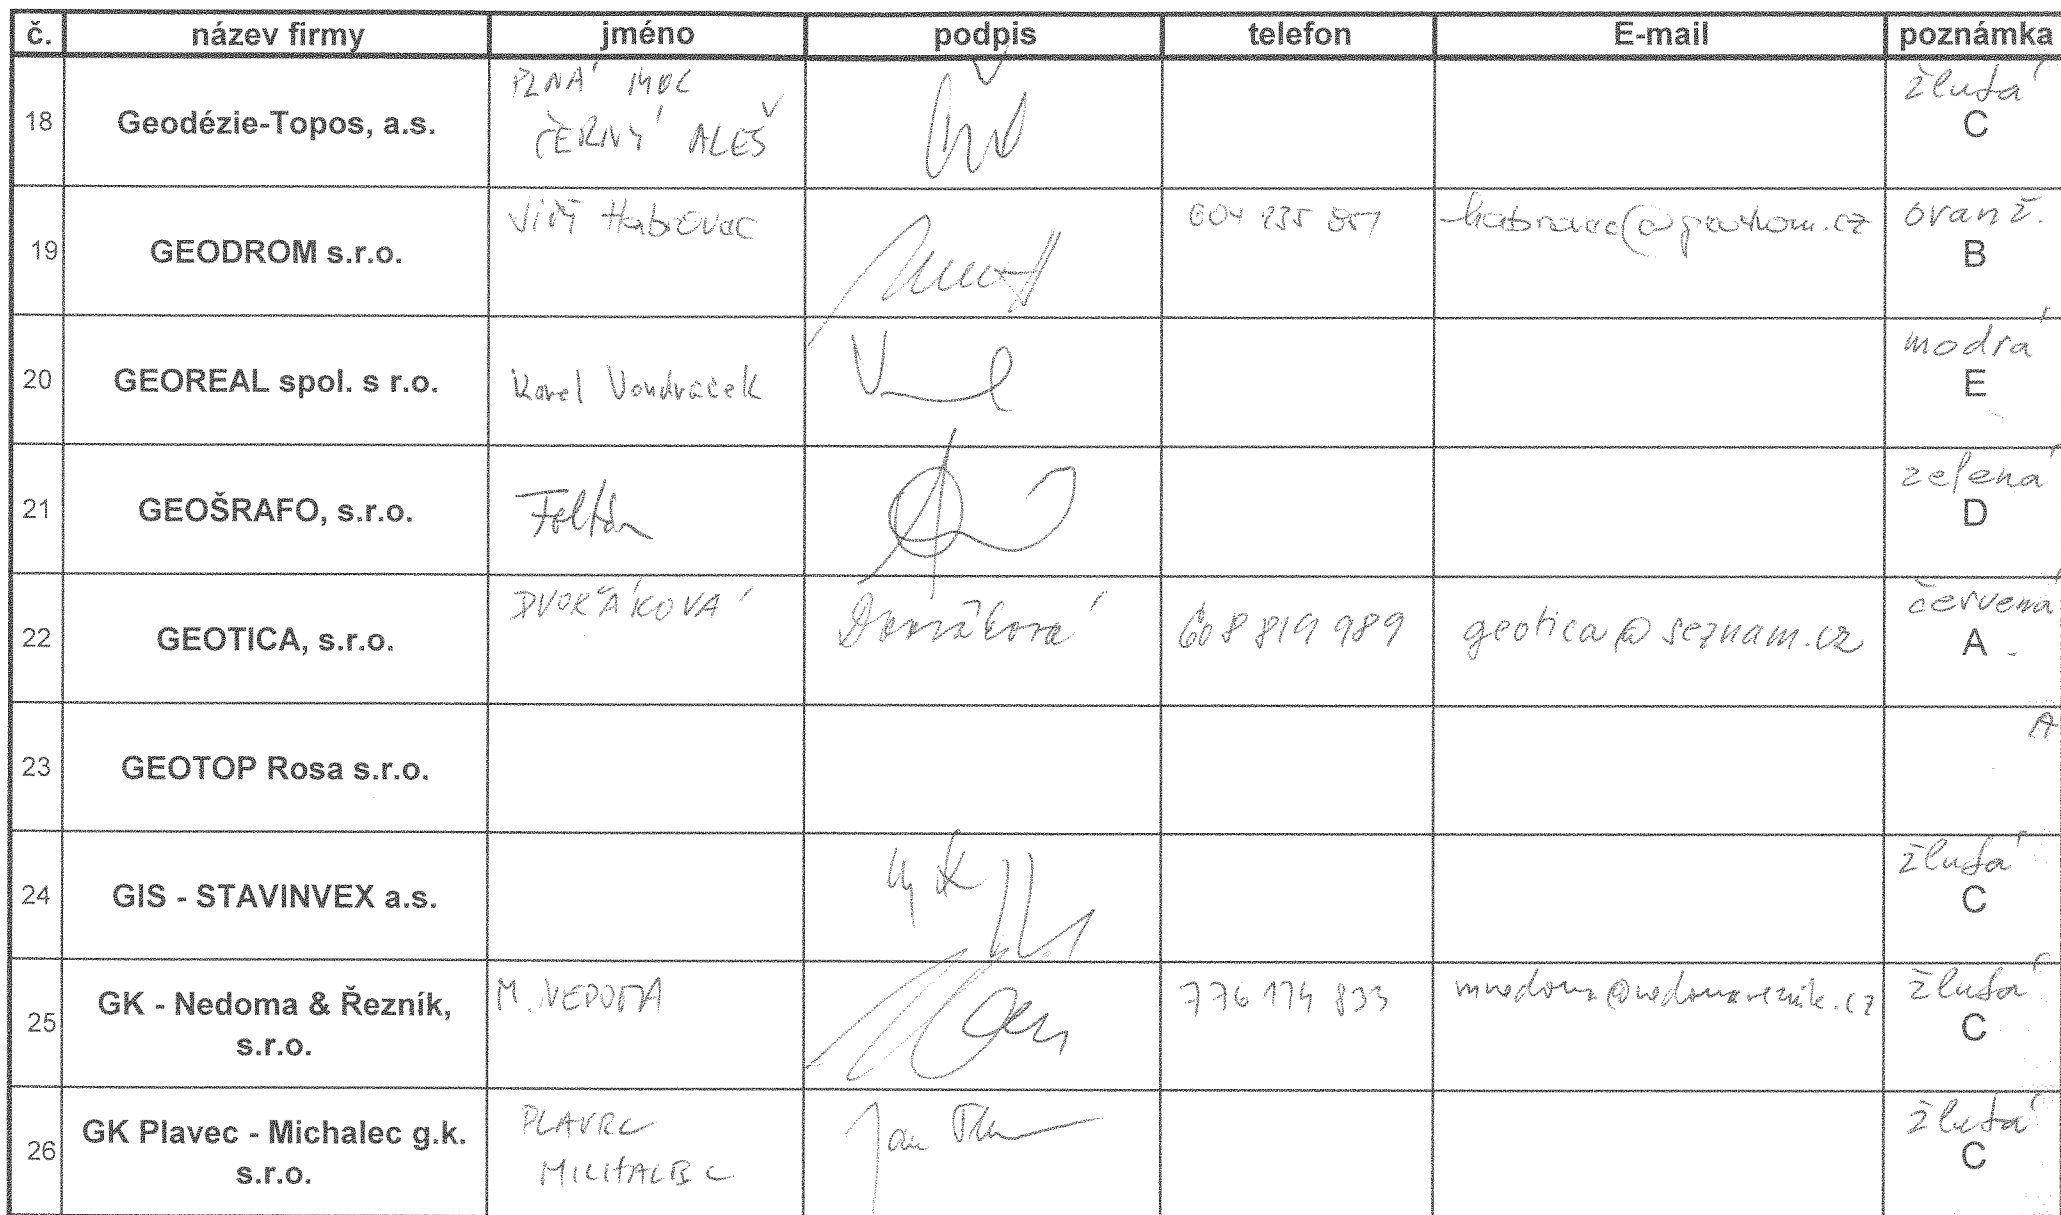 č. název firmy jméno podpis telefon E-mail poznámka
18 Geodézie-Topos, a.s. PLNÁ MOC ČERNÝ ALEŠ žlutá C
19 GEODROM s.r.o. Jiří 604 235 oranž. B
20 GEOREAL spol. s r.o. Karel Vondráček modrá E
21 GEOŠRAFO, s.r.o. zelená D
22 GEOTICA, s.r.o. DVOŘÁKOVÁ Dvořáková 608 819 989 geotica@seznam.cz červená A
23 GEOTOP Rosa s.r.o. A
24 GIS - STAVINVEX a.s. žlutá C
25 GK - Nedoma & Řezník, s.r.o. M. NEDOMA 776 174 833 mnedoma@nedomareznik.cz žlutá C
26 GK Plavec - Michalec g.k. s.r.o. PLAVEC MICHALEC Jan žlutá C